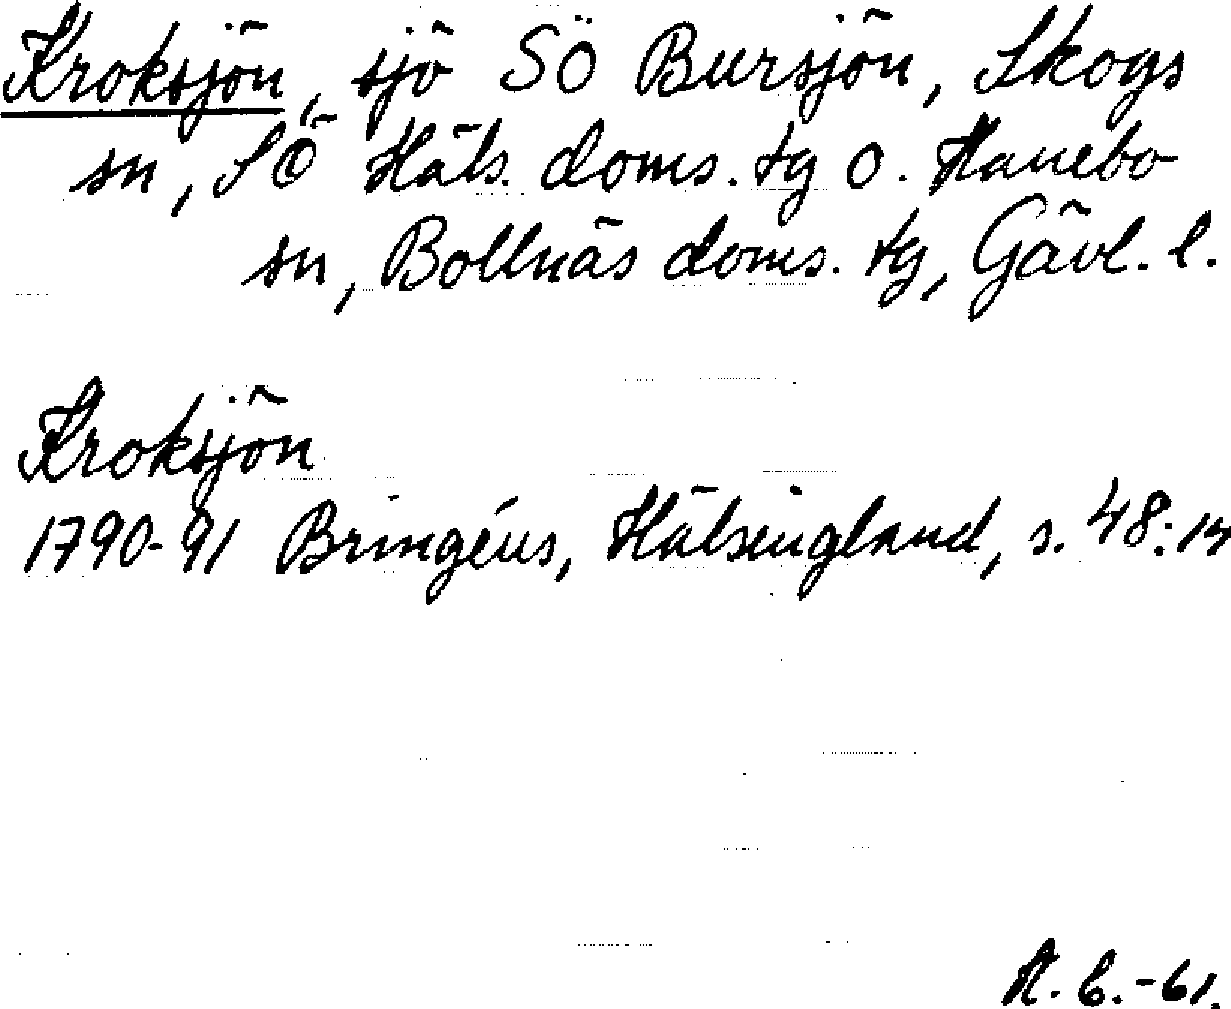 Kroksjön, sjö SÖ Bursjön, Skogs
sn, SÖ Häls. doms. tg o. Hanebo
sn, Bollnäs doms. tg, Gävl. l.
Kroksjön
1790-91 Bringéus, Hälsingland, s. 48:
-61.